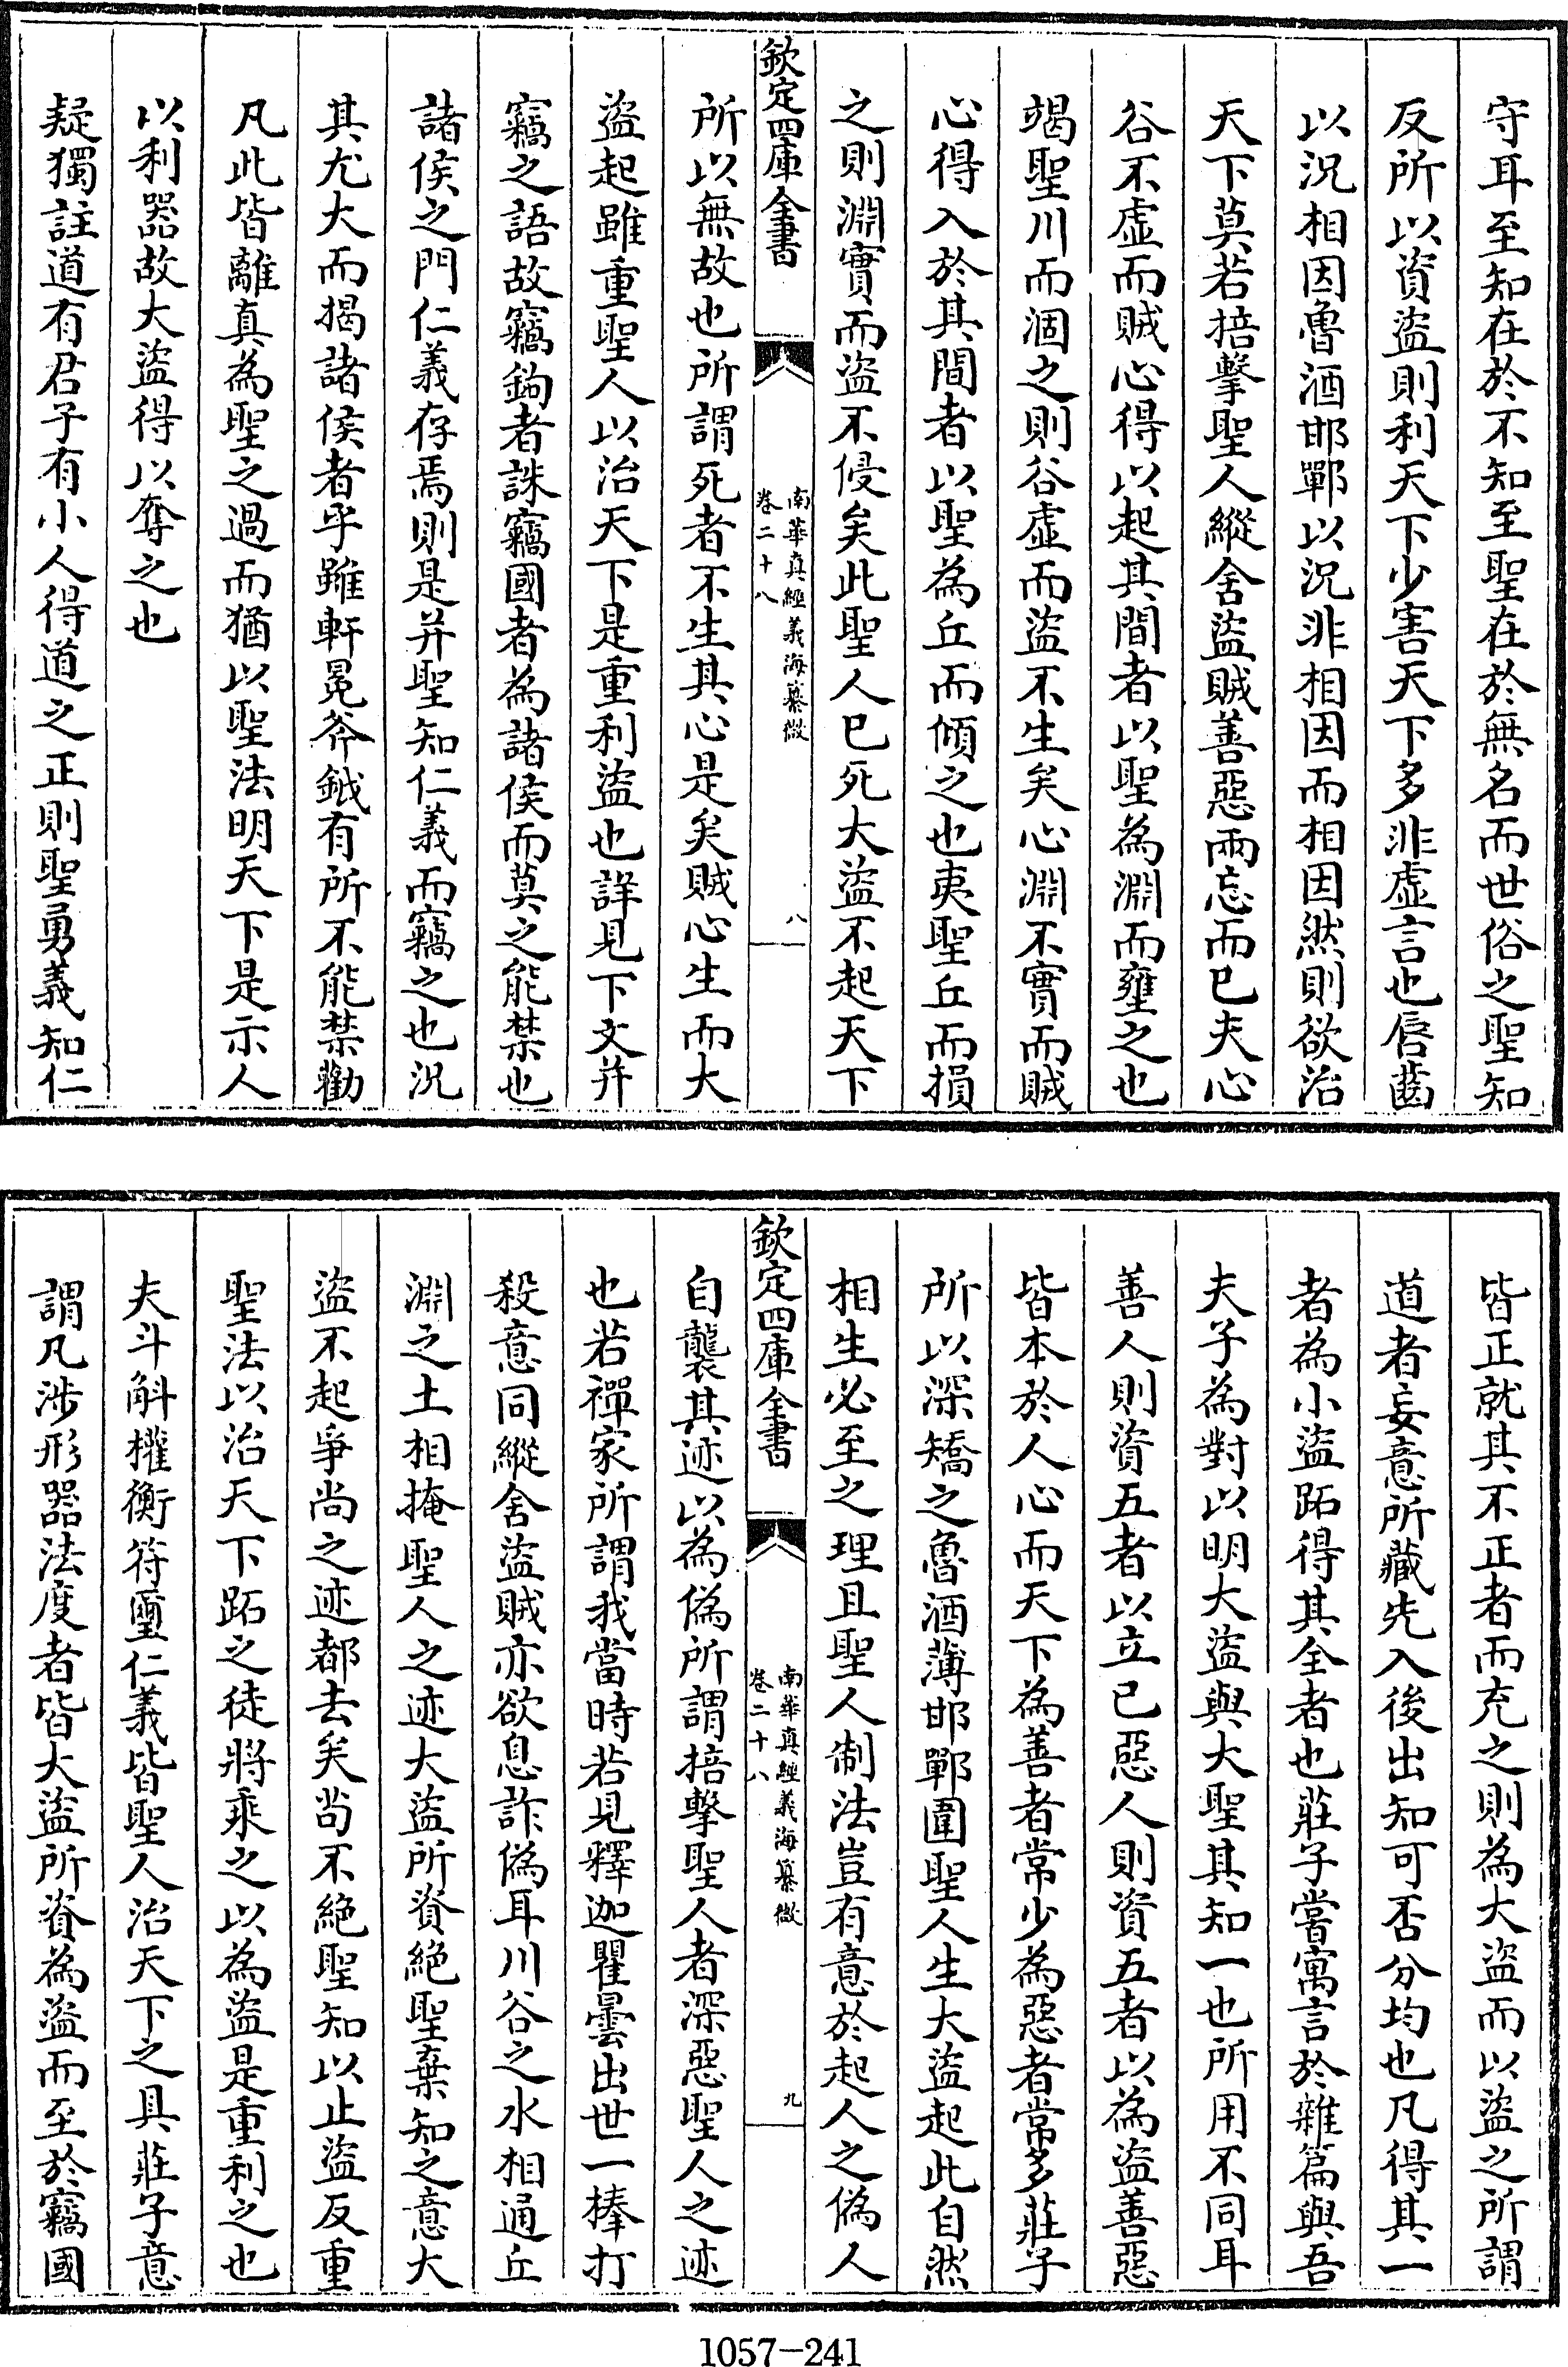 守耳至知在於不知至聖在於無名而世俗之聖知
反所以資盜則利天下少害天下多非虚言也唇齒
以況相因魯酒邯鄲以況非相因而相因然則欲治
天下莫若掊擊聖人縱舍盜賊善惡兩忘而已夫心
谷不虚而賊心得以起其間者以聖為淵而壅之也
竭聖川而涸之則谷虚而盜不生矣心淵不實而賊
心得入於其間者以聖為丘而傾之也夷聖丘而損
之則淵實而盜不侵矣此聖人已死大盜不起天下
欽定四庫全書
南華真經義海纂微
卷二十八
八
所以無故也所謂死者不生其心是矣賊心生而大
盜起雖重聖人以治天下是重利盜也詳見下文并
竊之語故竊鉤者誅竊國者為諸侯而莫之能禁也
諸侯之門仁義存焉則是并聖知仁義而竊之也況
其尤大而揭諸侯者乎雖軒冕斧鉞有所不能禁勸
凡此皆離真為聖之過而猶以聖法明天下是示人
以利器故大盜得以奪之也
疑獨註道有君子有小人得道之正則聖勇義知仁
皆正就其不正者而充之則為大盜而以盜之所謂
道者妄意所藏先入後出知可否分均也凡得其一
者為小盜跖得其全者也莊子嘗寓言於雜篇與吾
夫子為對以明大盜與大聖其知一也所用不同耳
善人則資五者以立已惡人則資五者以為盜善惡
皆本於人心而天下為善者常少為惡者常多莊子
所以深矯之魯酒薄邯鄲圍聖人生大盜起此自然
相生必至之理且聖人制法豈有意於起人之偽人
欽定四庫全書
南華真經義海纂微
卷二十八
九
自襲其迹以為偽所謂掊擊聖人者深惡聖人之迹
也若禪家所謂我當時若見釋迦瞿曇出世一棒打
殺意同縱舍盜賊亦欲息詐偽耳川谷之水相通丘
淵之土相掩聖人之迹大盜所資絶聖棄知之意大
盜不起爭尚之迹都去矣茍不絶聖知以止盜反重
聖法以治天下跖之徒將乘之以為盜是重利之也
夫斗斛權衡符璽仁義皆聖人治天下之具莊子意
謂凡涉形器法度者皆大盜所資為盜而至於竊國
1057-241